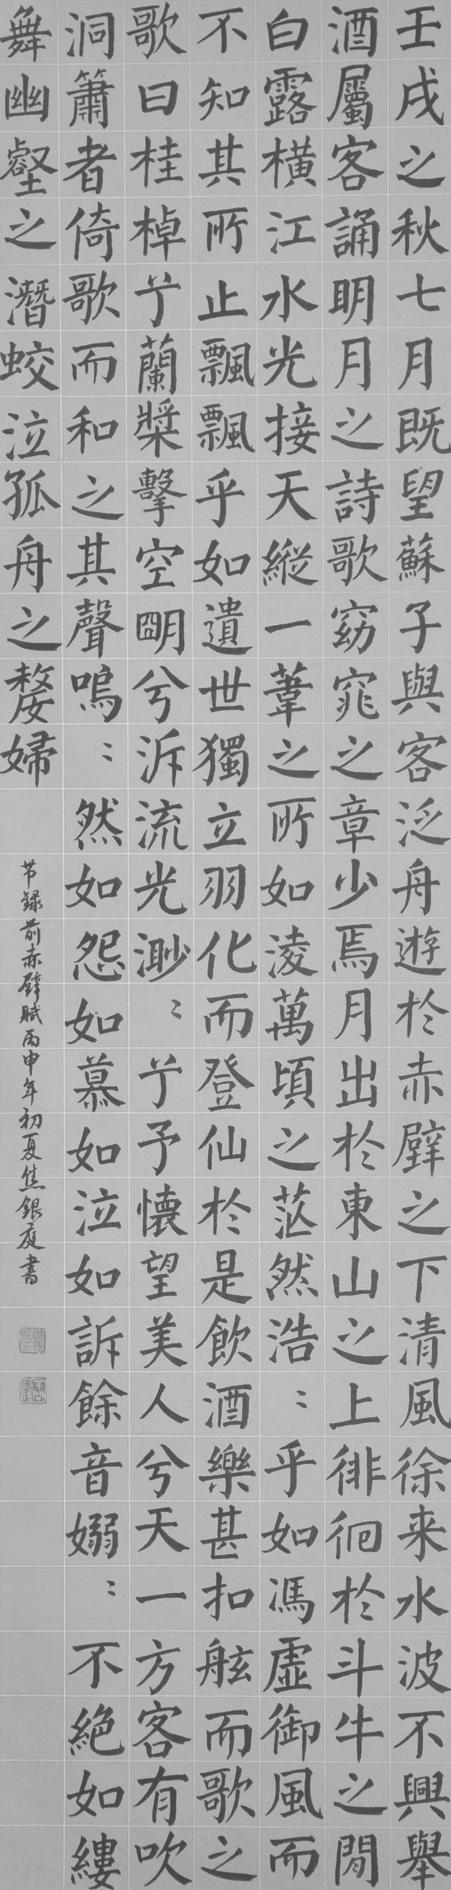 壬戌之秋七月既望蘇子與客泛舟遊於赤壁之下清風徐来水波不興舉
酒屬客誦明月之詩歌窈窕之章少焉月出於東山之上徘徊於斗牛之間
白露橫江水光接天縱一葦之所如淩萬頃之茫然浩〻乎如馮虛御風而
不知其所止飄飄乎如遺世獨立羽化而登仙於是飲酒樂甚扣舷而歌之
歌曰桂棹兮蘭槳擊空明兮泝流光渺〻兮予懷望美人兮天一方客有吹
洞簫者倚歌而和之其聲嗚〻然如怨如慕如泣如訴餘音嫋〻不絕如縷
舞幽壑之潛蛟泣孤舟之嫠婦
节録前赤壁賦丙申年初夏焦銀庭書